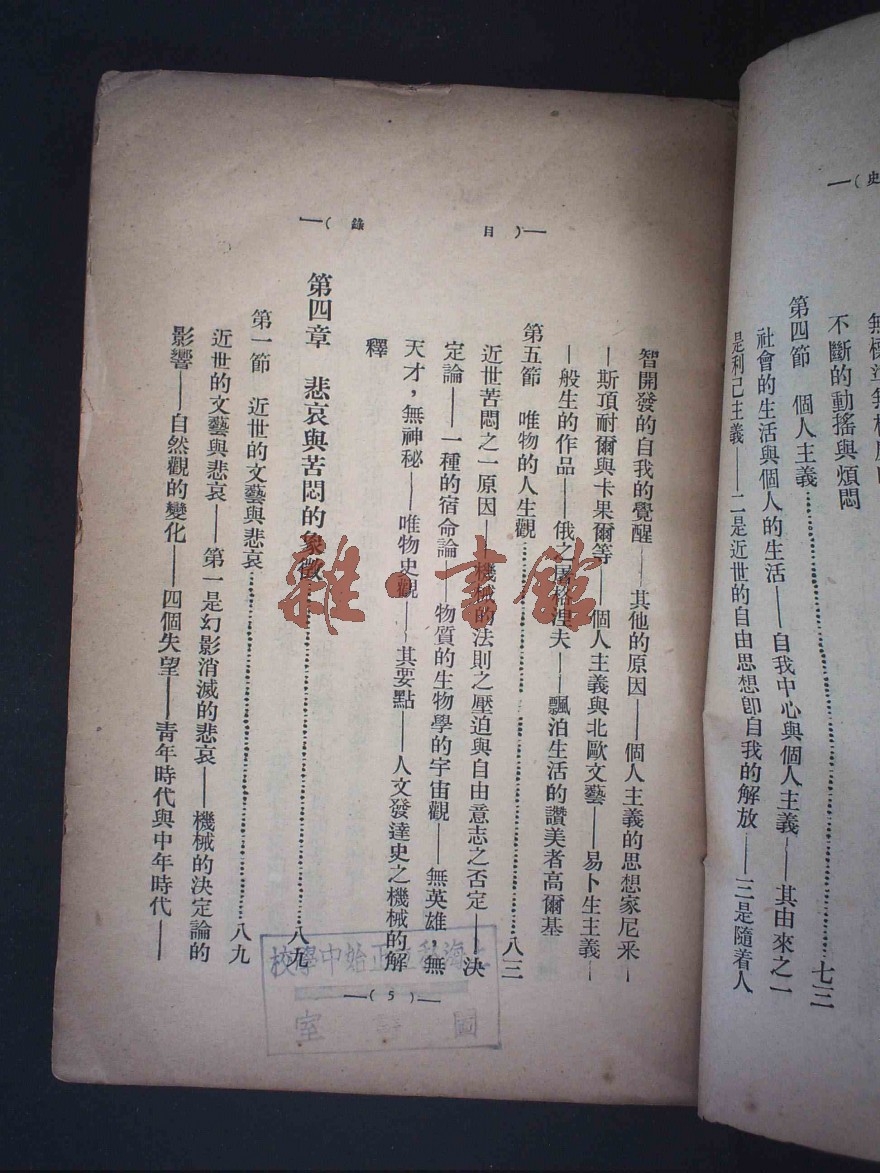 史
不斷的動搖與煩悶
第四節　個人主義…………七三
社會的生活與個人的生活——自我中心與個人主義——其由來之一
是利己主義——二是近世的自由思想卽自我的解放——三是隨着人
目錄
智開發的自我的覺醒——其他的原因——個人主義的思想家尼釆—
—斯頂耐爾與卡果爾等——個人主義與北歐文藝——易卜生主義—
—般生的作品——俄之屠格涅夫——飄泊生活的讚美者高爾基
第五節　唯物的人生觀…………八三
近世苦悶之一原因——機械的法則之壓迫與自由意志之否定——決
定論——一種的宿命論——物質的生物學的宇宙觀——無英雄，無
天才，無神秘——唯物史觀——其要點——人文發達史之機械的解
釋
第四章　悲哀與苦悶的象徵…………八九
第一節　近世的文藝與悲哀…………八九
近世的文藝與悲哀——第一是幻影消滅的悲哀——機械的決定論的
影響——自然觀的變化——四個失望——靑年時代與中年時代——
(5)
上海私立正始中學校
圖書室
雜·書館